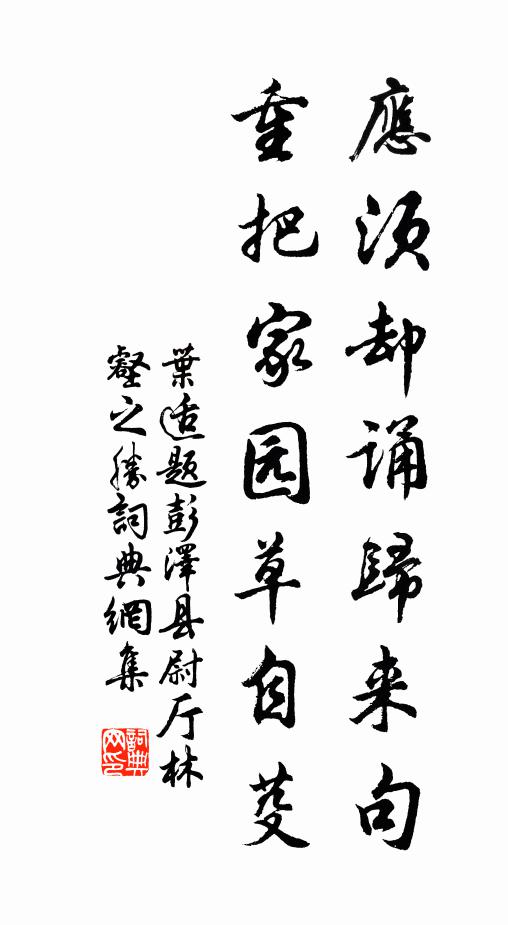 應須却誦歸来句
重把家园草自芟
葉适题彭澤县尉厅林
壑之勝詞典網集
詞典网印